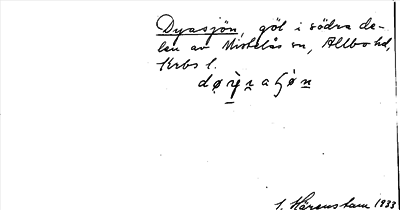 Dyasjön, göl i södra de-
len av Mistelås sn, Allbo hd,
Krbs l.
S. Härenstam 1933